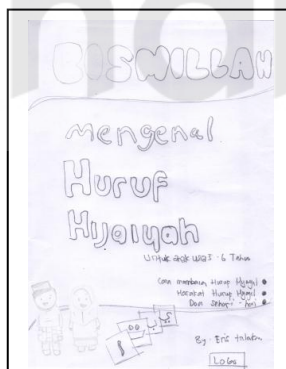 BISMILLAH
Mengenal
Huruf
Hijaiyah
Untuk anak usia 5 - 6 Tahun
Cara membaca Huruf Hijaiyah
Harakat Huruf Hijaiyah
Doa Sehari - hari
By. Eric
Logo